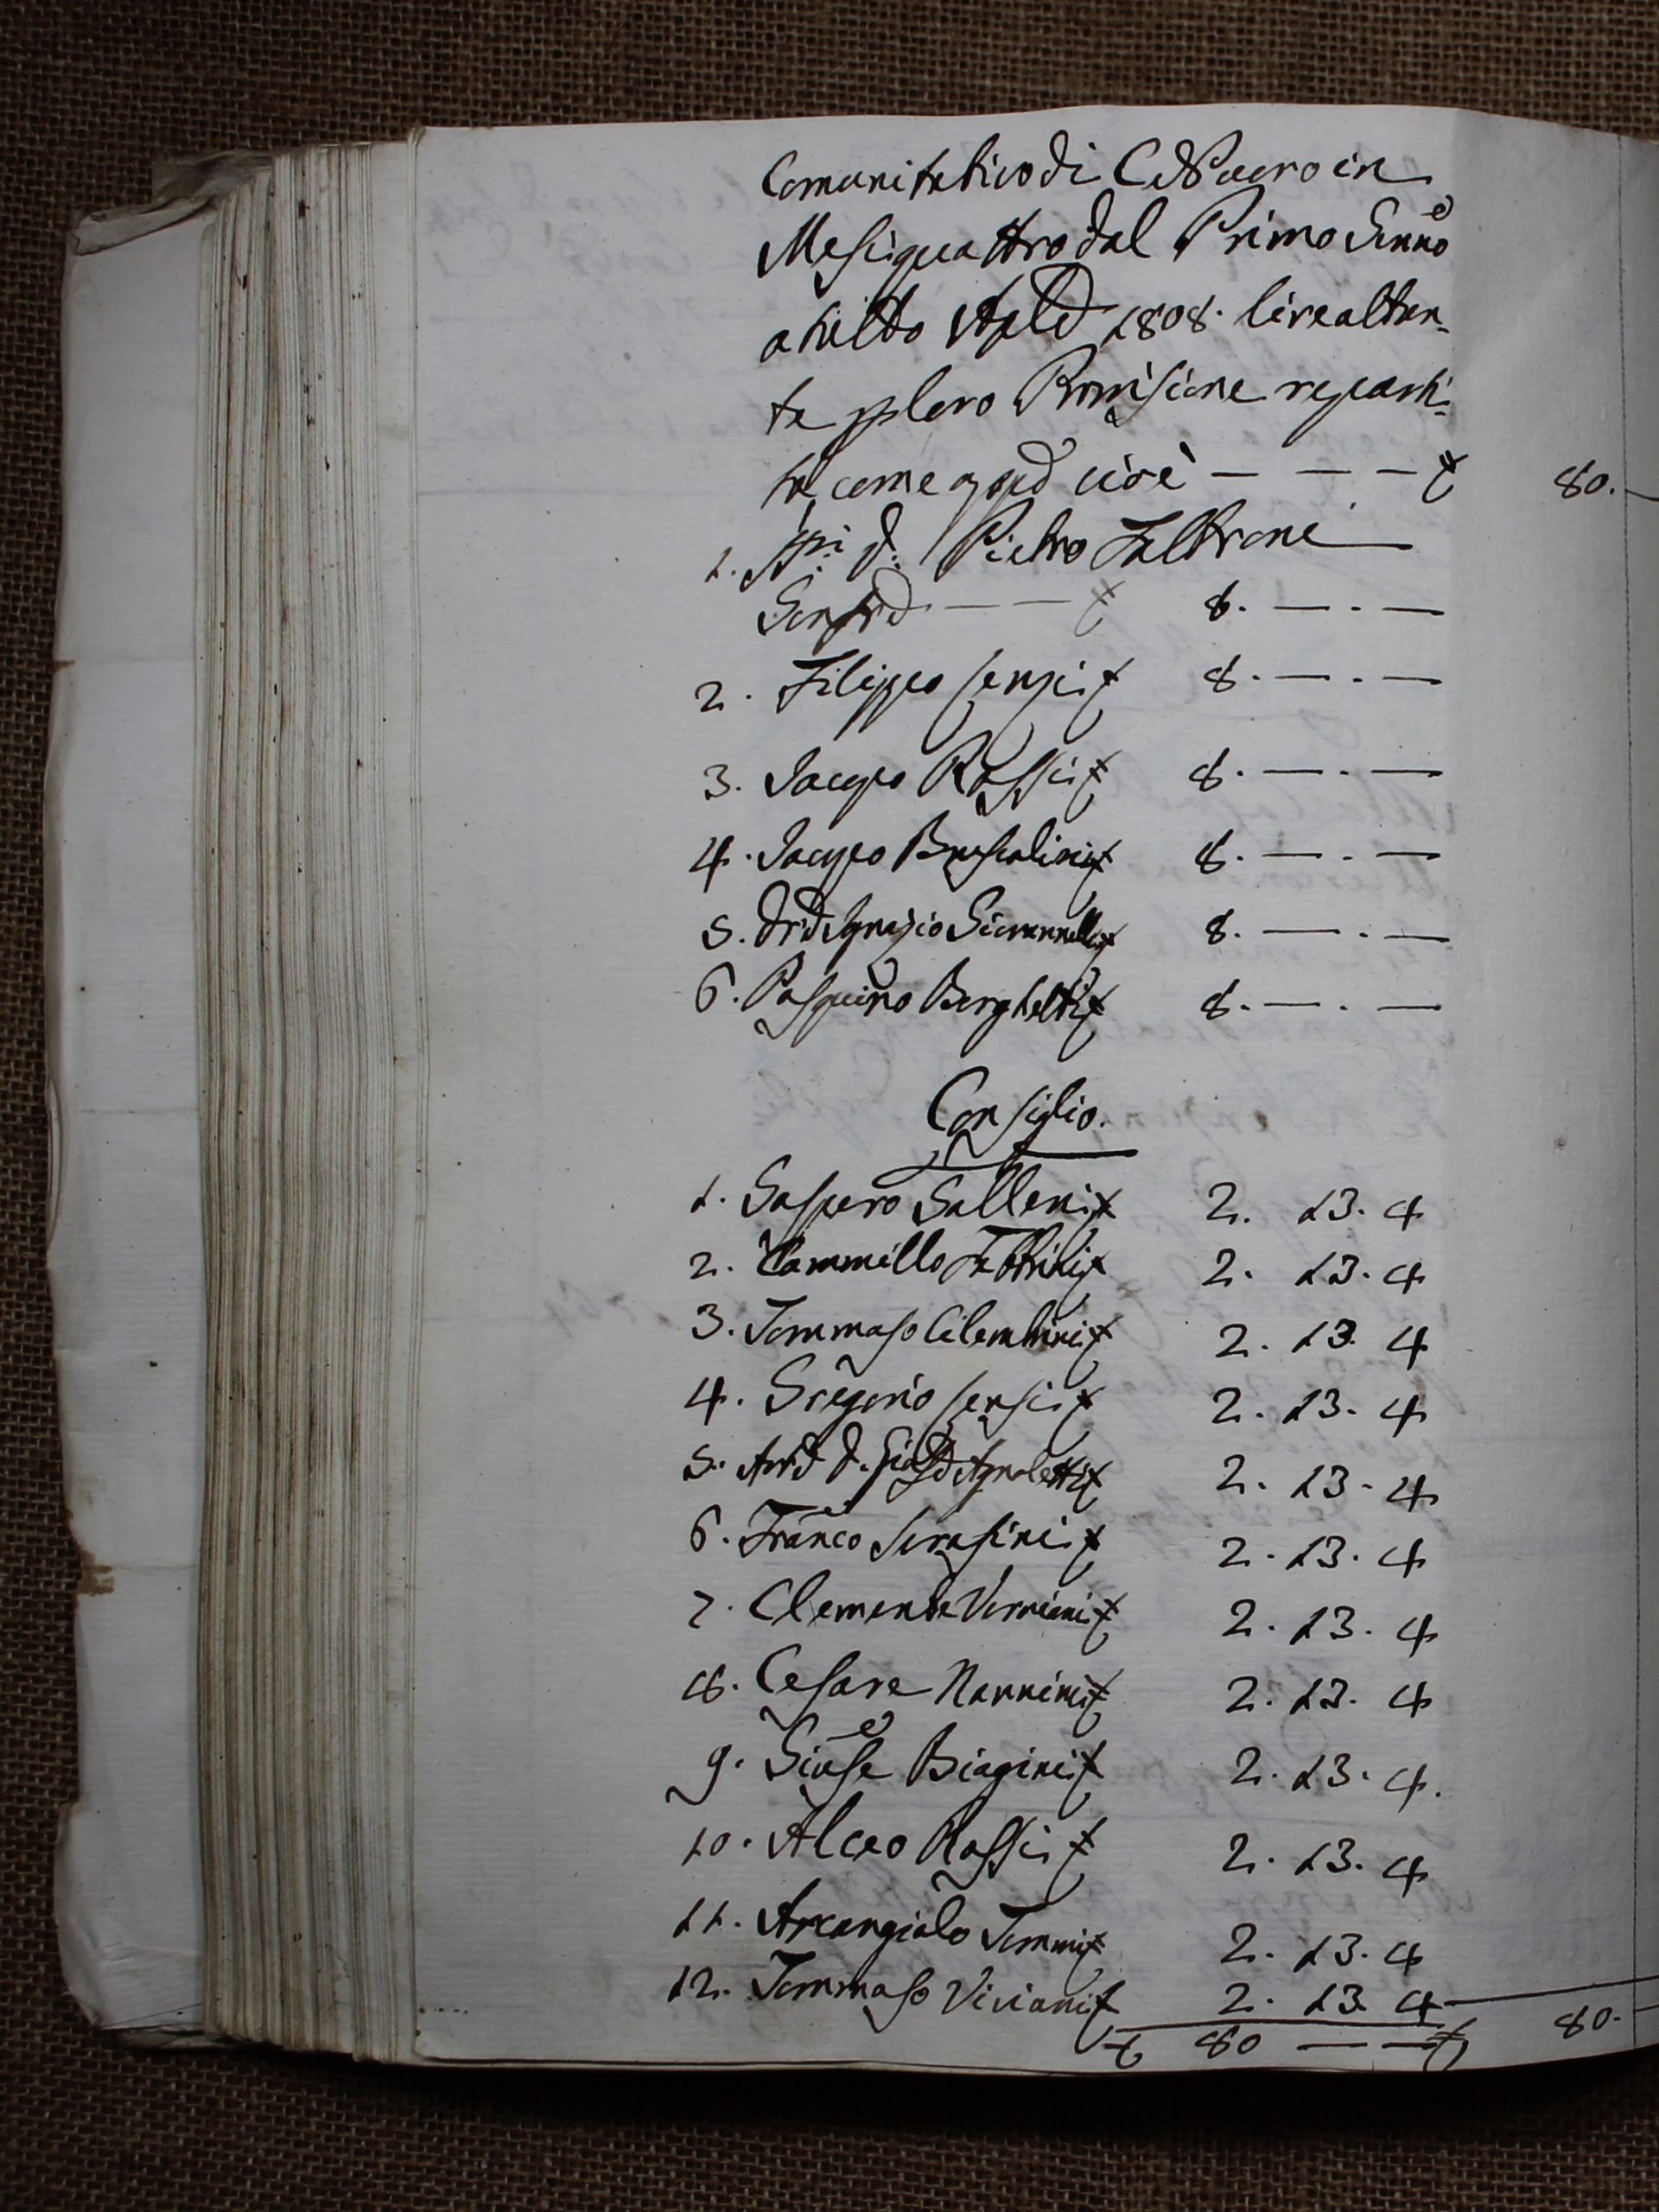 Comunitativo di
Mesi quattro dal Primo Genn.o
a tutto 1808. lire altan-
te p loro Provisione reparti-
te come app.o cioè — — — £ 80. —
1. d. Pietro Feltrone
— — £ 8. — . —
2. Filippo Sensi £ 8. — . —
3. Jacopo Rossi £ 8. — . —
4. Jacopo Bruscolini £ 8. — . —
5. Ignazio Giovannelli £ 8. — . —
6. Pasquino Borghetti £ 8. — . —
Consiglio.
1. Gaspero Galleni £ 2. 13. 4
2. Cammillo £ 2. 13. 4
3. Tommaso £ 2. 13. 4
4. Gregorio Sensi £ 2. 13. 4
5. d. Agnoletti £ 2. 13. 4
6. Fran.co Serafini £ 2. 13. 4
7. Clemente £ 2. 13. 4
8. Cesare Nannini £ 2. 13. 4
9. Gius.e Biagini £ 2. 13. 4.
10. Alceo Rossi £ 2. 13. 4
11. Arcangiolo Tommi £ 2. 13. 4
12. Tommaso Viviani £ 2. 13. 4
£ 80 — — £ 80.